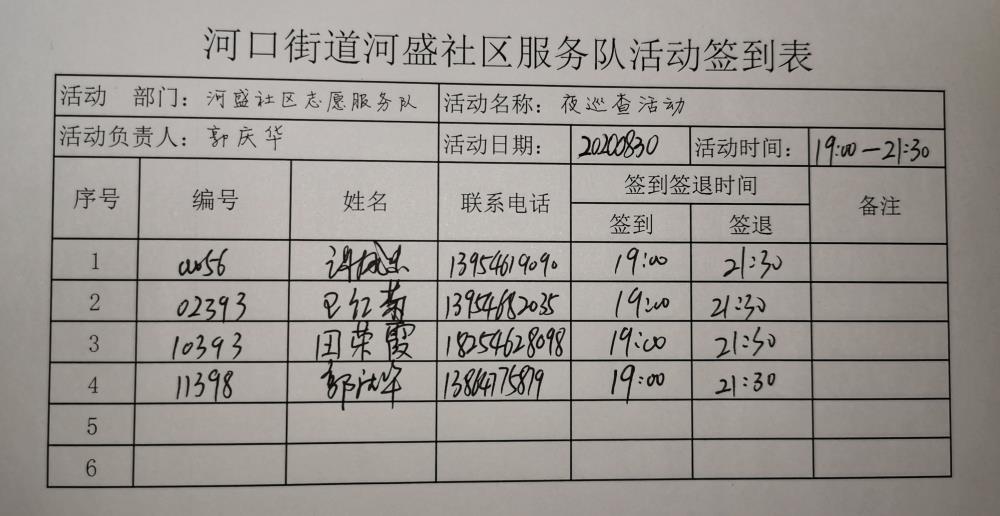 河口街道河盛社区服务队活动签到表
活动 部门：河盛社区志愿服务队 活动名称：夜巡查活动
活动负责人：郭庆华 活动日期：20200830 活动时间：19:00—21:30
序号 编号 姓名 联系电话 签到签退时间 备注
签到 签退
1 13954619090 19:00 21:30
2 02393 13954682035 19:00 21:30
3 10393 田荣霞 18254628098 19:00 21:30
4 11398 郭庆华 13864775879 19:00 21:30
5
6